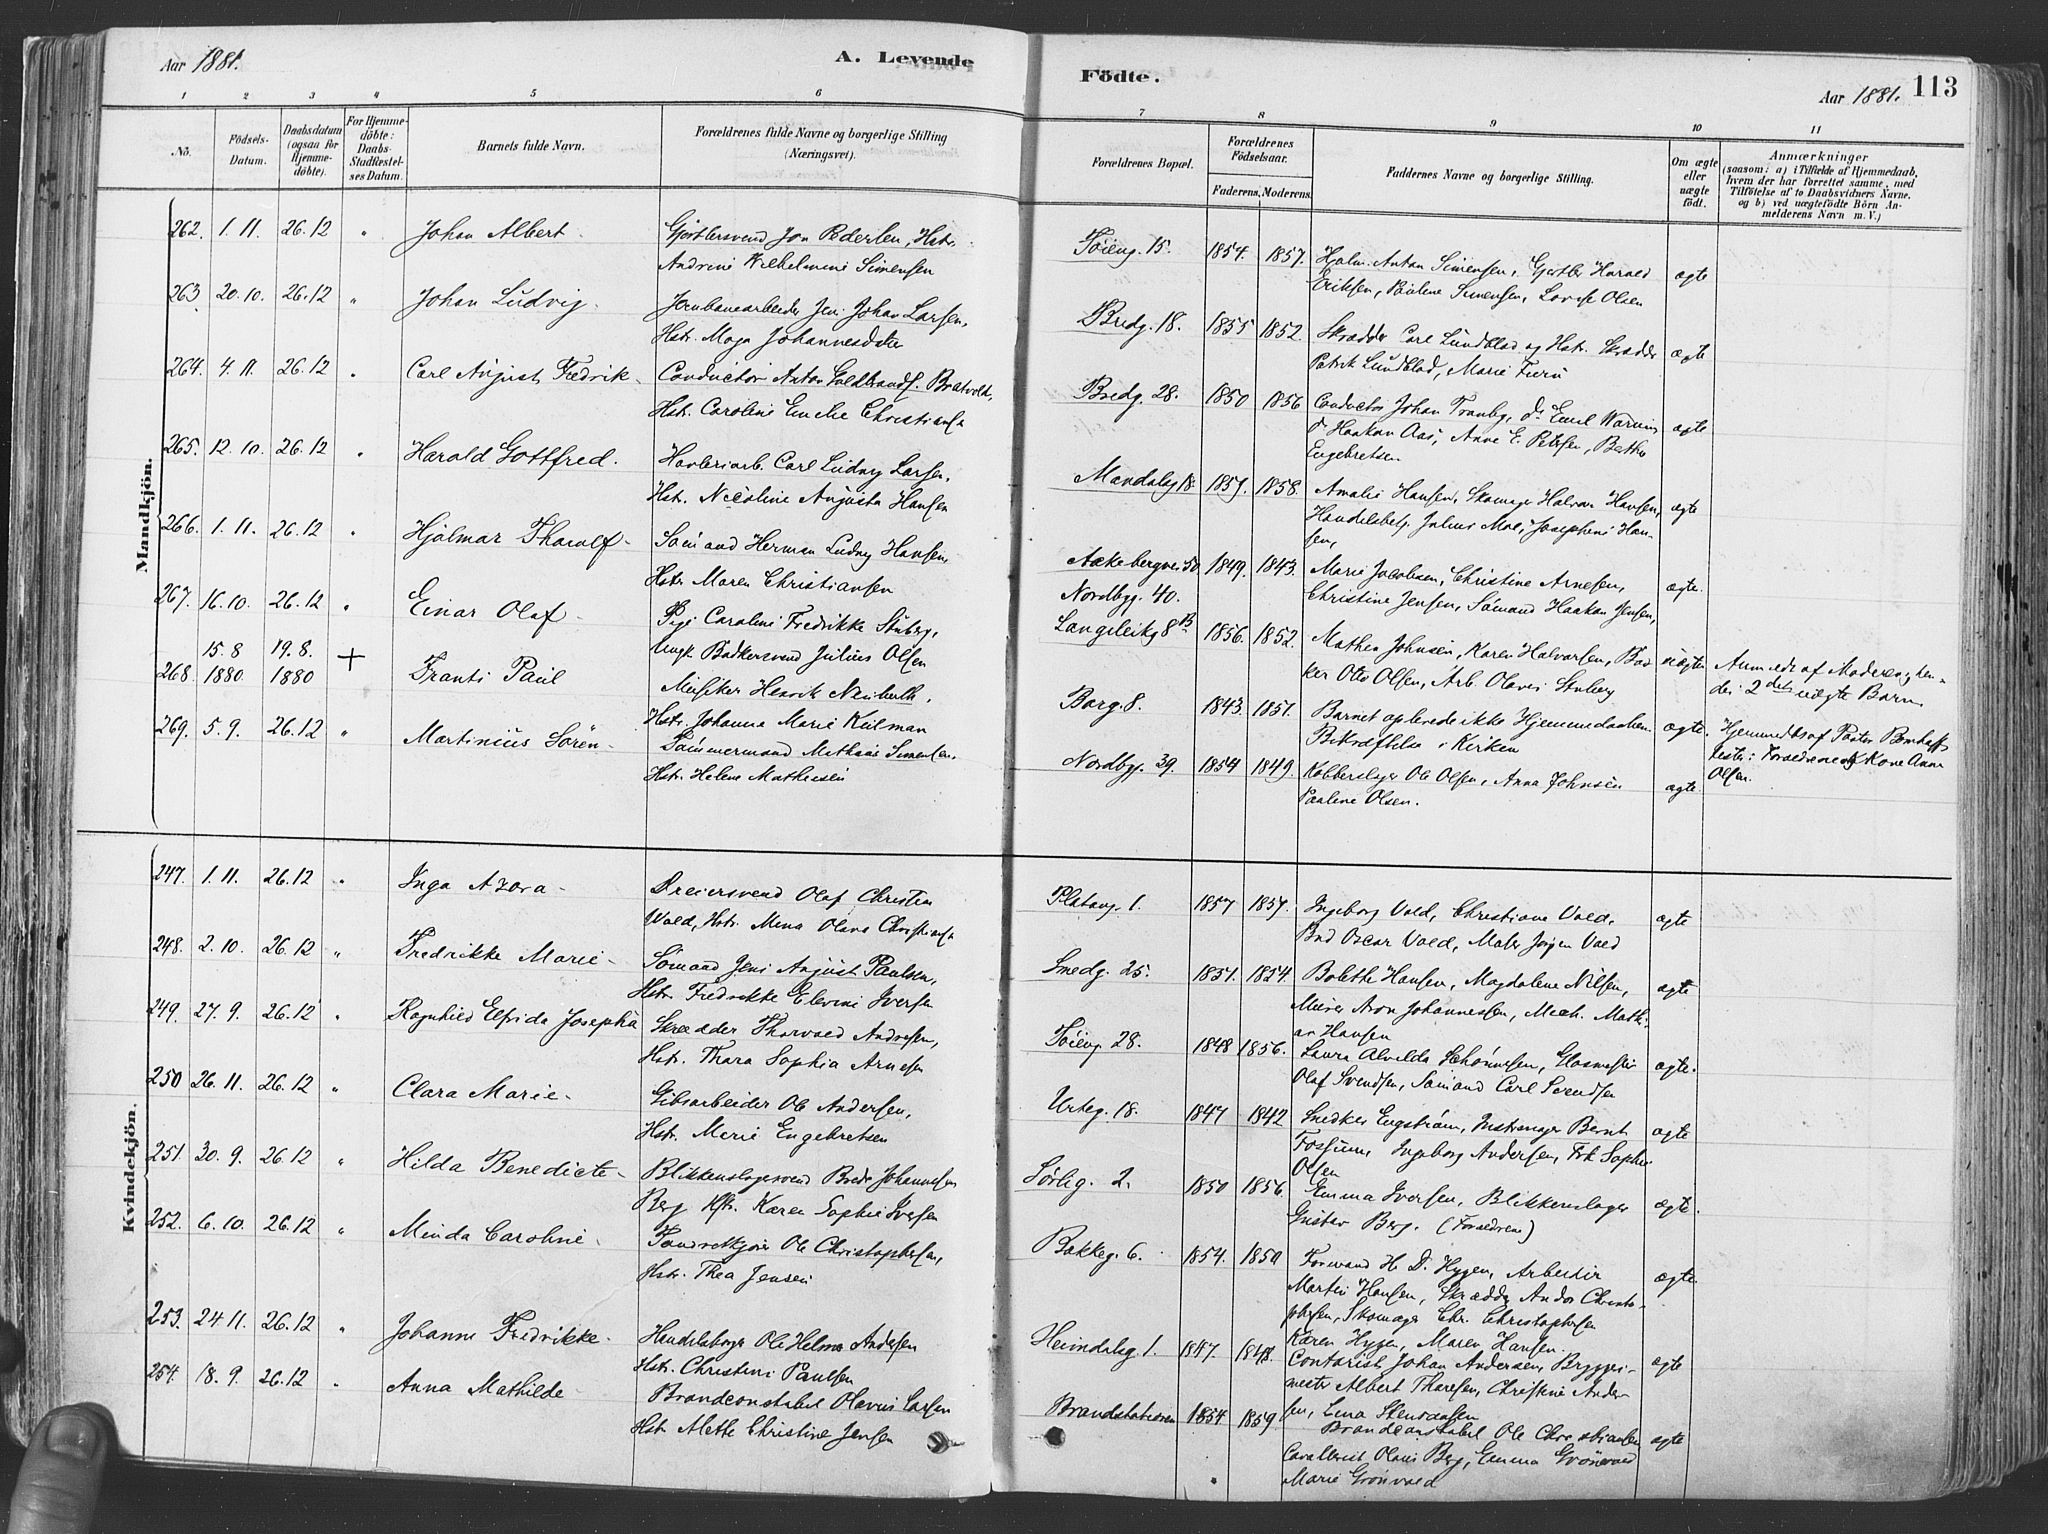 Aar 1881.
A. Levende
Födte.
Aar 1881.
113
1 2 3 4 5 6 7 8 9 10 11
No.
Födsels-Datum.
Daabsdatum (ogsaa for Hjemmedöbte).
For Hjemmedöbte: Daabs-Stadfæstelses Datum.
Barnets fulde Navn.
Forældrenes fulde Navne og borgerlige Stilling (Næringsvei).
Forældrenes Bopæl.
Forældrenes Födselsaar.
Faderens. Moderens.
Faddernes Navne og borgerlige Stilling.
Om ægte eller uægte födt.
Anmærkninger
(saasom: a) i Tilfælde af Hjemmedaab, hvem der har forrettet samme, med Tilföielse af to Daabsvidners Navne, og b) ved uægtefödte Börn Anmelderens Navn m. V.)
Mandkjön.
262. 1. 11. 26. 12 " Johan Albert. Gjørtlersvend Jon Pedersen, Hstr. Töieng. 15. 1854. 1857. Anton Simensen, Gjørtler Harald ægte
Andrine Wilhelmine Simensen Eriksen, Pauline Simensen, Lovise Olsen
263 20. 10. 26. 12 " Johan Ludvig. Jernbanearbeider Jens Johan Larsen, Bredg. 18. 1855 1852. Skrædder Carl Lundblad og Hstr. Skrædder ægte
Hstr. Johannesdatter Patrik Lundblad, Marie Furu
264. 4. 11. 26. 12 " Carl August Fredrik. Conductör Anton Bratvold, Bredg. 28. 1850 1856 Conductör Johan Tranby, do Emil ægte
Hstr. Caroline Emilie Christians. do Haakon Aas, Anne E. Petersen, Berthe
Engebretsen
265. 12. 10. 26. 12 " Harald Gottfred. Carl Ludvig Larsen, Mandalsg 18. 1857. 1858. Amalie Hansen, Skomager Halvor Hansen, ægte
Hstr. Nicoline Augusta Hansen Handelsbetj. Julius Moe, Josephine Han-
sen,
266. 1. 11. 26. 12 " Hjalmar Tharalf. Sømand Herman Ludvig Hansen, Aakebergvei 50 1849. 1843. Marie Jacobsen, Christine Arnesen, ægte.
Hstr. Maren Christiansen Nordbyg. 40. Christine Jensen, Sømand Haakon Jensen,
267. 16. 10. 26. 12 " Einar Olaf. Pige Caroline Fredrikke Stuberg, Langeleikg 8 B 1856. 1852. Mathea Johnsen, Karen Halvorsen, Bad- uægte Anmeldt af Moderen, hen-
Ungk. Bødkersvend Julius Olsen ker Otto Olsen, Arb. Olaves Stuberg des 2det uægte Barn
268. 15. 8 1880 19. 8. 1880 + Frants Paul Musiker Henrik Neuberth, Borg. 8. 1843. 1851. Barnet oplevede ikke Hjemmedaabens ægte. Hjemmedøbt af Pastor
Hstr. Johanna Marie Kulman Bekræftelse i Kirken Forældrene og Kone Anne
Olsen.
269. 5. 9. 26. 12 " Martinius Sören. Tømmermand Mathias Simensen, Nordbyg. 39. 1854 1849. Kobberslager Ole Olsen, Anna Johnsen ægte
Hstr. Helene Mathiesen Pauline Olsen.
Kvindekjön.
247. 1. 11. 26. 12 " Inga Azora. Dreiersvend Olaf Christian Platoug. 1. 1857 1857. Ingeborg Vold, Christiane Vold, ægte
Wold, Hstr. Mina Olava Christians. Bud Oscar Vold, Maler Jörgen Vold
248. 2. 10. 26. 12 " Fredrikke Marie. Sømand Jens August Paulsen, Smedg. 25. 1851. 1854. Bolette Hansen, Magdalene Nilsen, ægte
Hstr. Fredrikke Elevine Iversen Murer Aron Johannessen, Mech. Mathi-
as Hansen
249. 27. 9. 26. 12 " Ragnhild Elfrida Josepha Skrædder Thorvald Andresen, Töieng. 28. 1848 1856. Laura Alvilda, Glasmester ægte.
Hstr. Thora Sophia Arnesen Olaf Svendsen, Sømand Carl Svendsen
250 26. 11. 26. 12 " Clara Marie. Gibsarbeider Ole Andersen, Urteg. 18. 1847 1842 Snedker Engstrøm, Instrmager Bernt ægte
Hstr. Merie Engebretsen Fossum, Ingeborg Andersen, Frk Sophie
Olsen
251. 30. 9. 26. 12 " Hilda Benedicte. Blikkenslagersvend Brede Johannesen Sörlig. 2. 1850 1856. Emma Iversen, Blikkenslager ægte.
Berg Hstr. Karen Sophie Iversen Gustav Berg. (Forældrene)
252. 6. 10. 26. 12 " Minda Caroline. Vandrekjører Ole Christophersen, Bakkeg. 6. 1854. 1850 Formand H. D. Hygen, Arbeider ægte.
Hstr. Thea Jensen Martin Hansen, Skrædder Andor Christo-
phersen, Skomager Chr. Christophersen
Karen Hygen, Maren Hansen.
253. 24 11. 26. 12 " Johanne Fredrikke. Handelsborger Ole Helmer Andersen Heimdalsg. 1. 1847. 1848. Contorist Johan Andersen, Brygge- ægte
Hstr. Christine Paulsen mester Albert Thoresen, Christine Ander-
sen, Lina Stensaasen
254. 18. 9. 26. 12 " Anna Mathilde. Brandconstabel Olavus Larsen Brandstationen 1854 1859. Brandconstabel Ole Christiansen ægte
Hstr. Mette Christine Jensen Cavallerist Olaus Berg, Emma Grönvold
Marie Grönvold